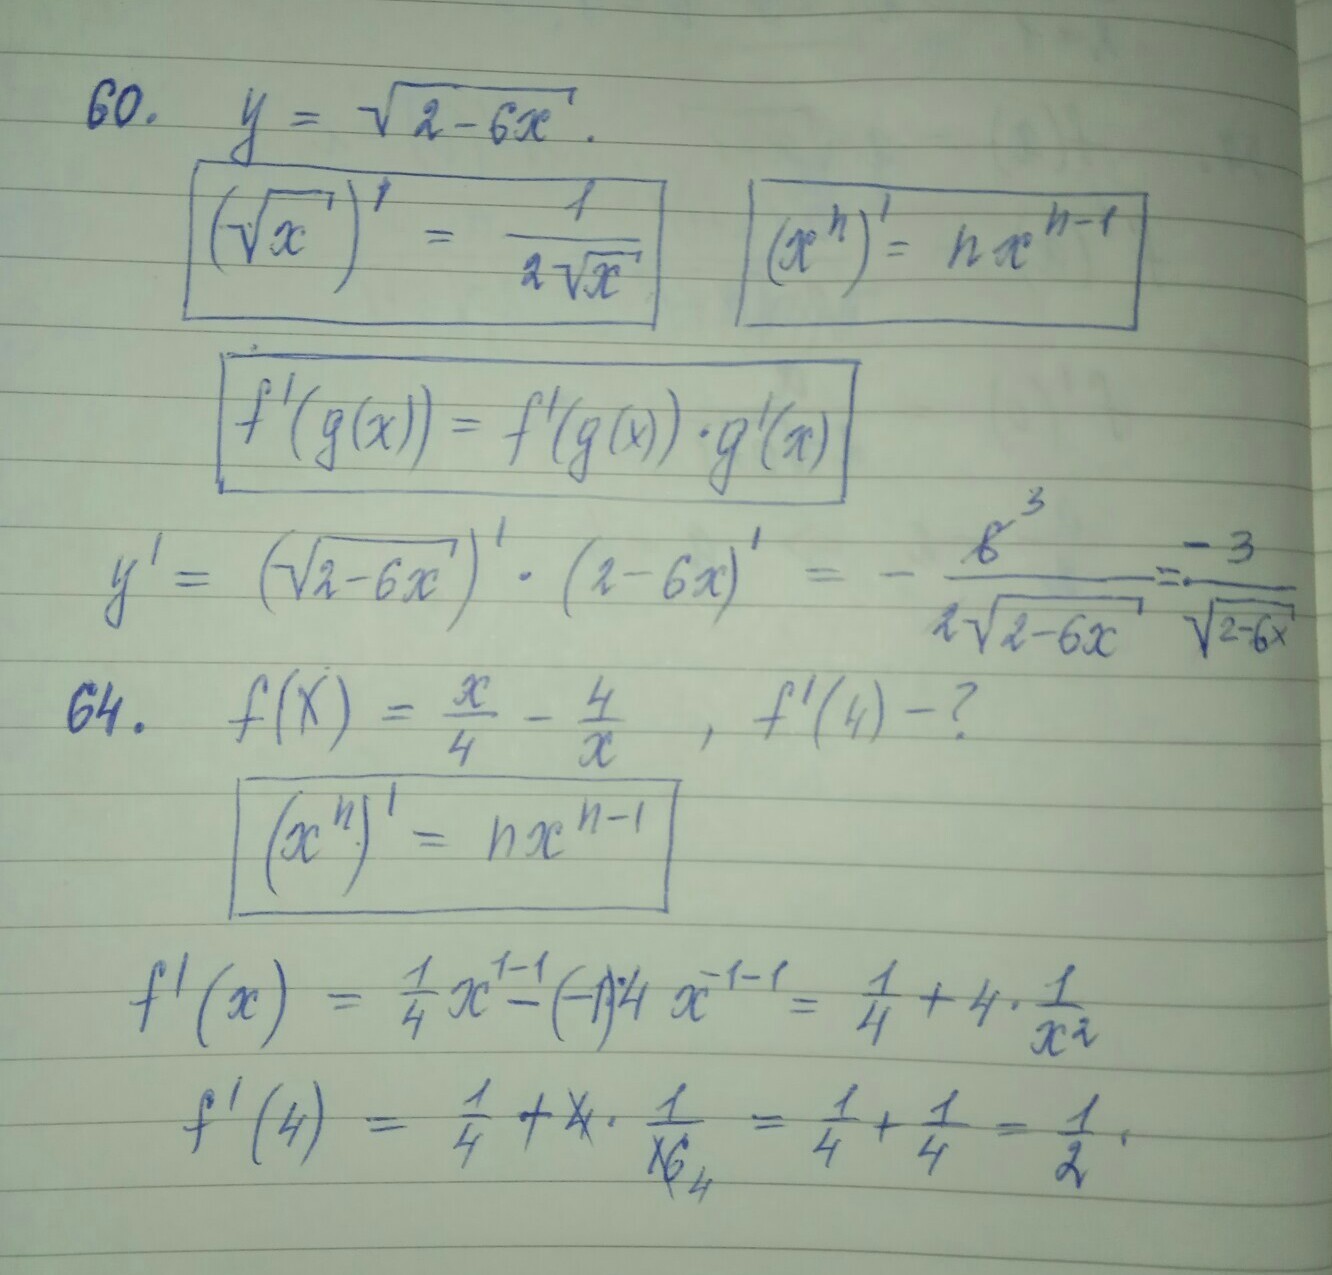 60. y = √(2-6x).
(√x)' = 1/(2√x) (xⁿ)' = nxⁿ⁻¹
f'(g(x)) = f'(g(x)) · g'(x)
y' = (√(2-6x))' · (2-6x)' = - 6̸ ³/(2√(2-6x)) = -3/√(2-6x)
64. f(x) = x/4 - 4/x , f'(4) - ?
(xⁿ)' = nxⁿ⁻¹
f'(x) = 1/4 x¹⁻¹ - (-1)·4 x⁻¹⁻¹ = 1/4 + 4 · 1/x²
f'(4) = 1/4 + 4̸ · 1/1̸6̸ ₄ = 1/4 + 1/4 = 1/2.